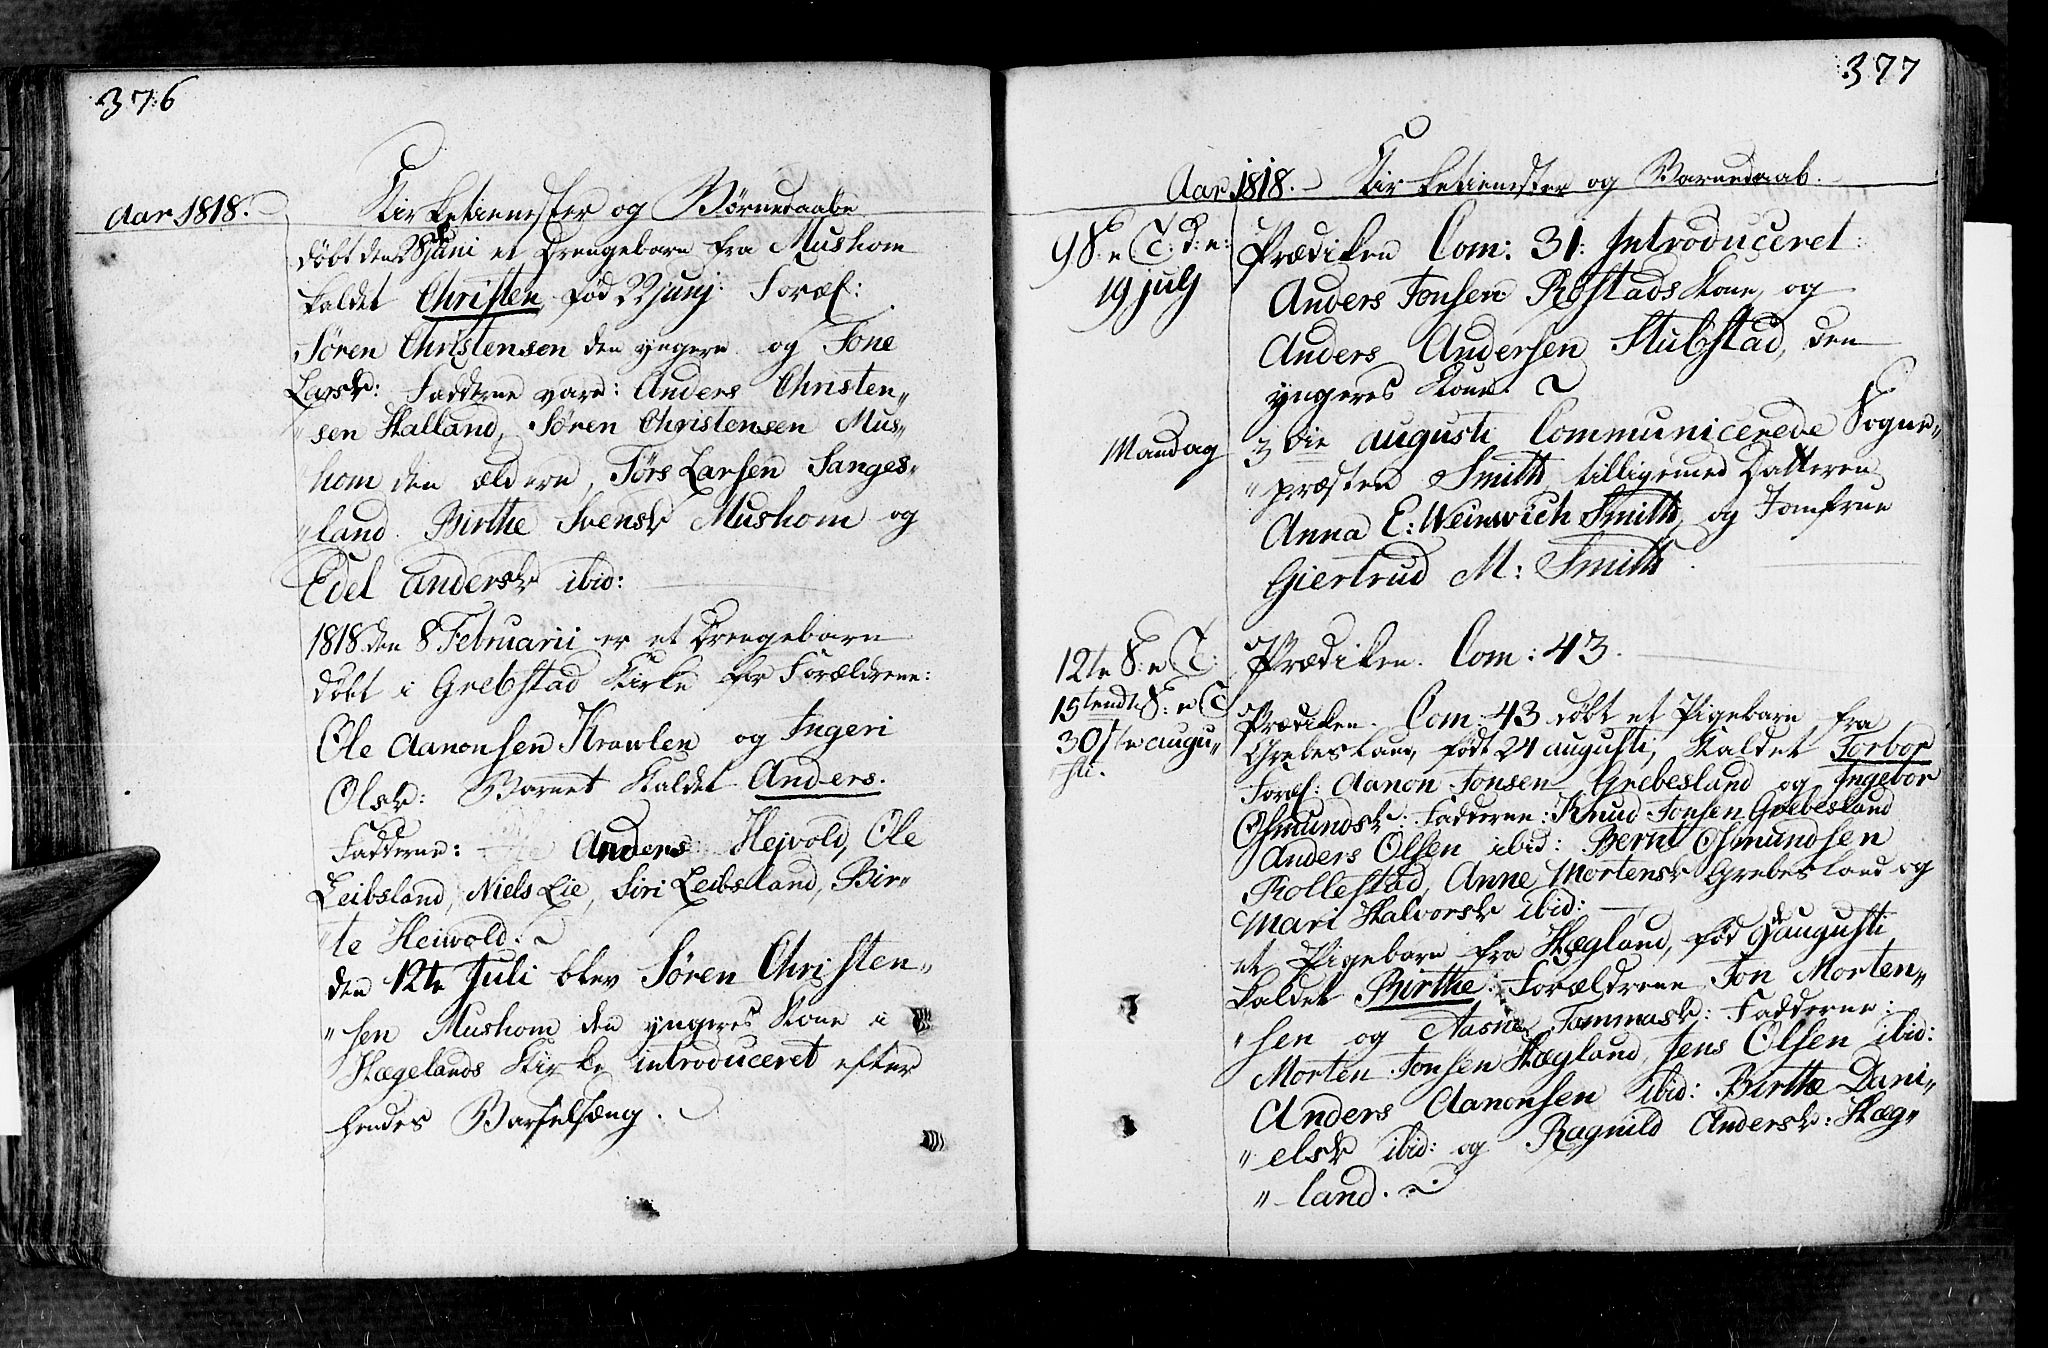 376
Aar 1818.
Kirketienester og Börnedaabe
döbt den 28 Juni et Drengebarn fra Mushom
kaldet Christen, föd 22 junj: Foræl:
Sören Christensen den yngere og Tone
Larsdr: Fadderne vare: Anders Christen„
„sen Halland, Sören Christensen Mus„
hom den ældere, Törs Larsen Sanges„
„land. Birthe Svensdr Mushom og
Edel Andersdr ibid:
1818 den 8 Februarii er et Drengebarn
döbt i Grebstad Kirke for Forældrene:
Ole Aanonsen Krawlen og Ingeri
Olsdr: Barnet kaldet Anders.
Fadderne: Anders Hejvold, Ole
Leibsland, Niels Lie, Siri Leibsland, Bir„
„te Heiwold.
den 12te Juli blev Sören Christen„
„sen Mushom den yngeres Kone i
Hægelands Kirke introduceret efter
hendes Barselsæng.
377
Aar 1818. Kirketienester og Barnedaab.
9 S: e T: d: e: Prædiken Com: 31: Introduceret:
19 julj Anders Jonsen Röstads Kone, og
Anders Andersen Stubstad, den
yngeres Kone.
Mandag 3die augusti Communicerede Sogne„
„præsten Smith tilligemed Datteren
Anna E: Weinwich Smith, og Jomfrue
Giertrud M: Smith.
12te S: e T: Prædiken. Com: 43.
15tende S: e T Prædiken. Com: 43 döbt et Pigebarn fra
30te augu„ Grebesland, födt 24 augusti, kaldet Torbor
„sti. Foræl: Aanon Jonsen Grebesland og Ingebor
Osmundsdr: Fadderne: Knud Jonsen Grebesland
Anders Olsen ibid: Bernt Osmundsen
Rollestad, Anne Mortensdr Grebesland og
Mari Halvorsdr ibid:
et Pigebarn fra Hægland, föd 9de augusti
kaldet Birthe: Forældrene Jon Morten„
„sen og Aasne Tommasdr: Fadderne:
Morten Jonsen Hægland, Jens Olsen ibid:
Anders Aanonsen ibid: Birthe Dani„
„elsdr ibid: og Ragnild Andersdr: Hæg„
„land.